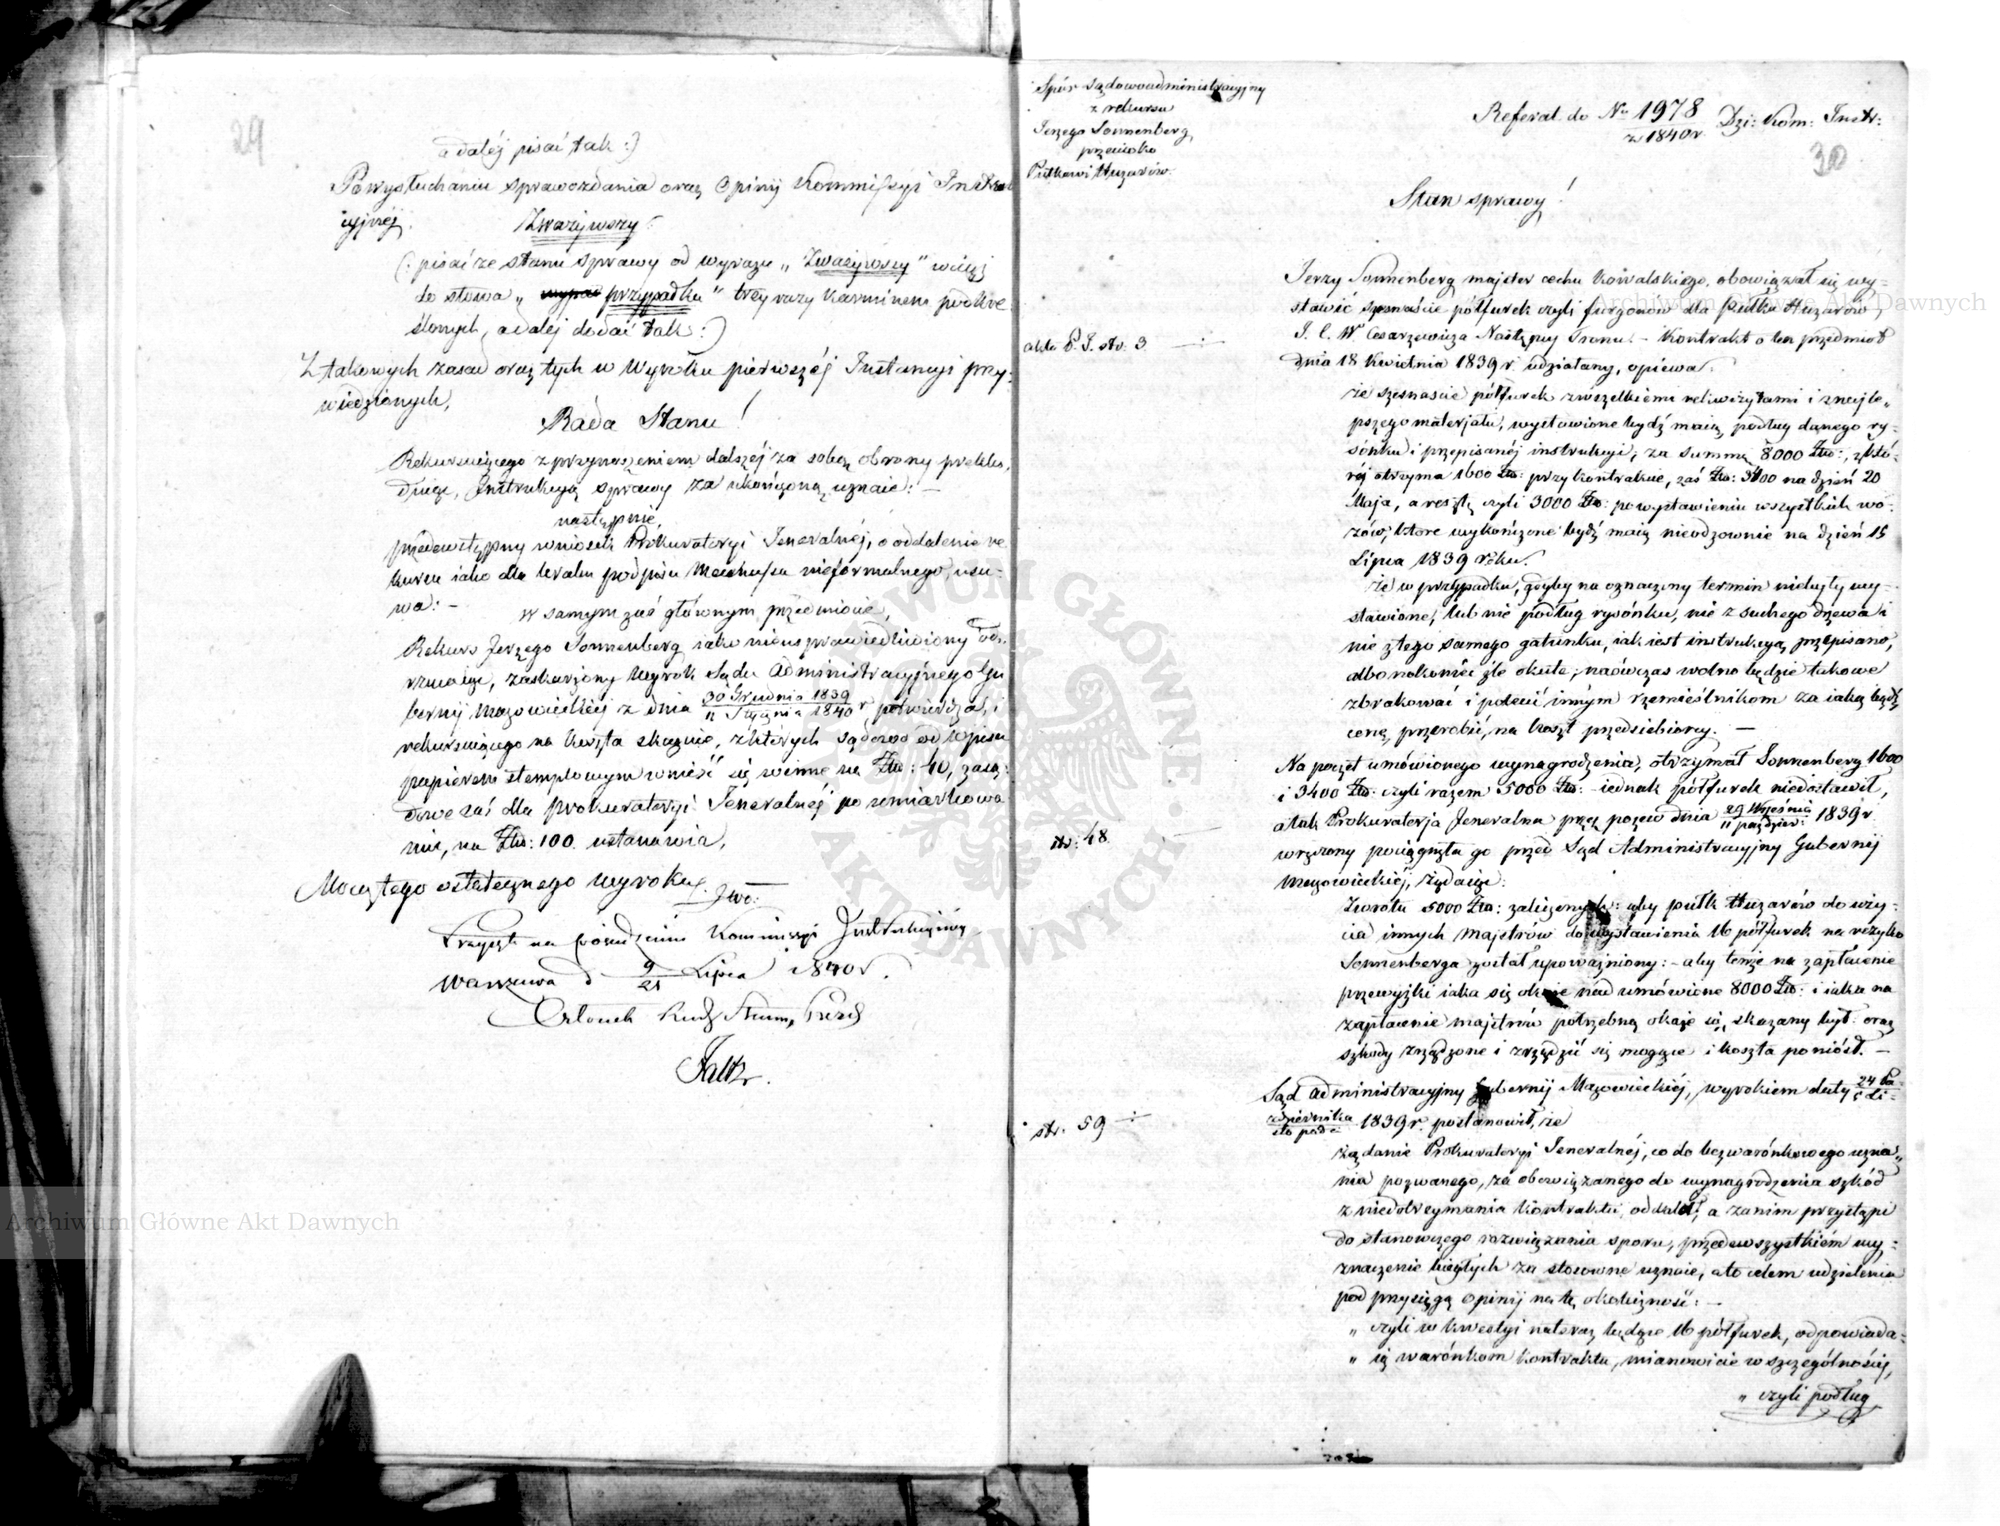 29
a daléj pisać tak:)
Po wysłuchaniu sprawozdania oraz Opinij Kommissyi Instruk
cyjnéj.
Zważywszy:
(: pisać ze stanu sprawy od wyrazu „Zważywszy" wciąż
do słowa „ przypadku" trzy razy karminem podkre
ślonych, a daléj dodać tak:)
Z takowych zasad oraz tych w Wyroku pierwszéj Instancyi przy-
wiedzionych,
Rada Stanu!
Rekursującego z przynoszeniem dalszéj za sobą obrony preklu-
dując, Instrukcyą sprawy za ukończoną uznaie: —
następnie,
przedewstępny wniosek Prokuratoryi Jeneralnéj, o oddalenie re
kursu iako dla braku podpisu nieformalnego, usu-
wa: —
w samym zaś głównym przedmiocie,
Rekurs Jerzego Sonnenberg iako nieusprawiedliwiony od-
rzucaiąc, zaskarżony Wyrok Sądu Administracyjnego Gu
bernij Mazowieckiéj z dnia 30 Grudnia 1839 / 11 Stycznia 1840 r. potwierdza, i
rekursuiącego na koszta skazuie, z których sądowe od wpisu
papierem stemplowym wnieść się winne na Złp: 40, zasą-
dowe zaś dla Prokuratoryi Jeneralnéj po umiarkowa
niu, na Złp: 100. ustanawia,
Mocą tego ostatecznego Wyroku.
Przyjęto na posiedzeniu Kommissyi Instrukcyjnéj
Warszawa d 9/21 Lipca 1840 r.
Członek Rady Stanu, Prezes
Faltz.
Spór sądowoadministracyjny
z rekursu
Jerzego Sonnenberg
przeciwko
Pułkowi Huzarów.
Referat do No 1978 z 1840 r. Dzi: Kom: Instr:
30
Stan sprawy!
Jerzy Sonnenberg majster cechu Kowalskiego, obowiązał się wy-
stawić szesnaście półfurek czyli furgonów dla Pułku Huzarów,
akta P. I. str. 3
J. C. W. Cesarzewicza Następcy Tronu. — Kontrakt o ten przedmiot
dnia 18 Kwietnia 1839 r. udziałany, opiewa.
że szesnaście półfurek z wszelkiemi rekwizytami i z najle-
pszego materjału, wystawione bydź maią podług danego ry-
sónku i przepisanéj instrukcyi, za summę 8000 Złp:, z któ-
réj otrzyma 1600 Złp: przy kontrakcie, zaś Złp: 3400 na dzień 20
Maja, a resztę czyli 3000 Złp: po wystawieniu wszystkich wo-
zów, które wykończone bydź maią nieodzownie na dzień 15
Lipca 1839 roku.
że w przypadku, gdyby na oznaczony termin nie były wy-
stawione, lub nie podług rysónku, nie z suchego drzewa i
nie z tego samego gatunku, iak iest instrukcyą przepisano,
albo nakoniec źle okute; naówczas wolno będzie takowe
zbrakować i polecić innym rzemieślnikom za iaką bądź
cenę przerobić, na koszt przedsiębiorcy. —
Na poczet umówionego wynagrodzenia, otrzymał Sonnenberg 1600
i 3400 Złp: czyli razem 5000 Złp: iednak półfurek niedostawił,
a tak Prokuratorja Jeneralna przez pozew dnia 29 Września / 11 paździer: 1839 r
str: 48
wręczony pociągnęła go przed Sąd Administracyjny Gubernij
Mazowieckiéj, żądaiąc:
Zwrotu 5000 Złp: zaliczonych: aby pułk Huzarów do uży-
cia innych majstrów do wystawienia 16 półfurek na rizyko
Sonnenberga został upoważniony: — aby tenże na zapłacenie
przewyżki iaka się okaże nad umówione 8000 Złp: i iaka na
zapłacenie majstrów potrzebną okaże się, skazany był: oraz
szkody zrządzone i zrządzić się mogące i koszta poniósł. —
Sąd Administracyjny Gubernij Mazowieckiéj, wyrokiem daty 24 Pa-
ździernika / 5 Listopada 1839 r. postanowił, że
str. 59
żądanie Prokuratoryi Jeneralnéj, co do bezwarónkowego uzna-
nia pozwanego, za obowiązanego do wynagrodzenia szkód
z niedotrzymania kontraktu, oddalił; a zanim przystąpi
do stanowczego rozwiązania sporu, przedewszystkiém wy-
znaczenie biegłych za stosowne uznaie, a to celem udzielenia
pod przysięgą opinij na tę okoliczność: —
„ czyli w kwestyi nateraz będące 16 półfurek, odpowiada-
„ ią warónkom kontraktu, mianowicie w szczególności,
„ czyli podług